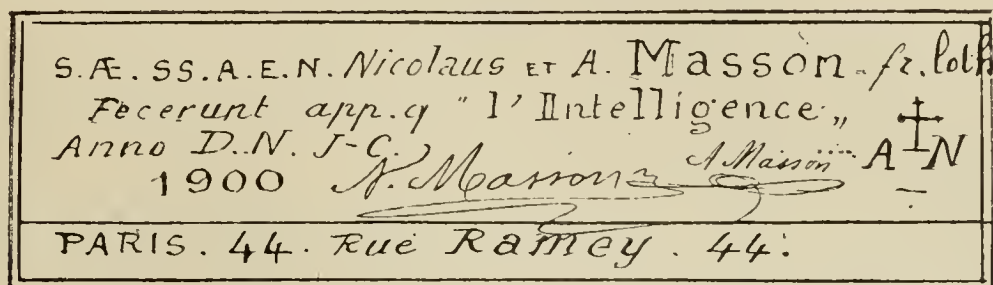 S.Æ. SS. A. E. N. Nicolaus ET A. Masson. fr. loth
Fecerunt app. q "l'Intelligence„
Anno D. N. J-C. A N
1900 N. Masson A Masson
PARIS. 44. Rue Ramey. 44.